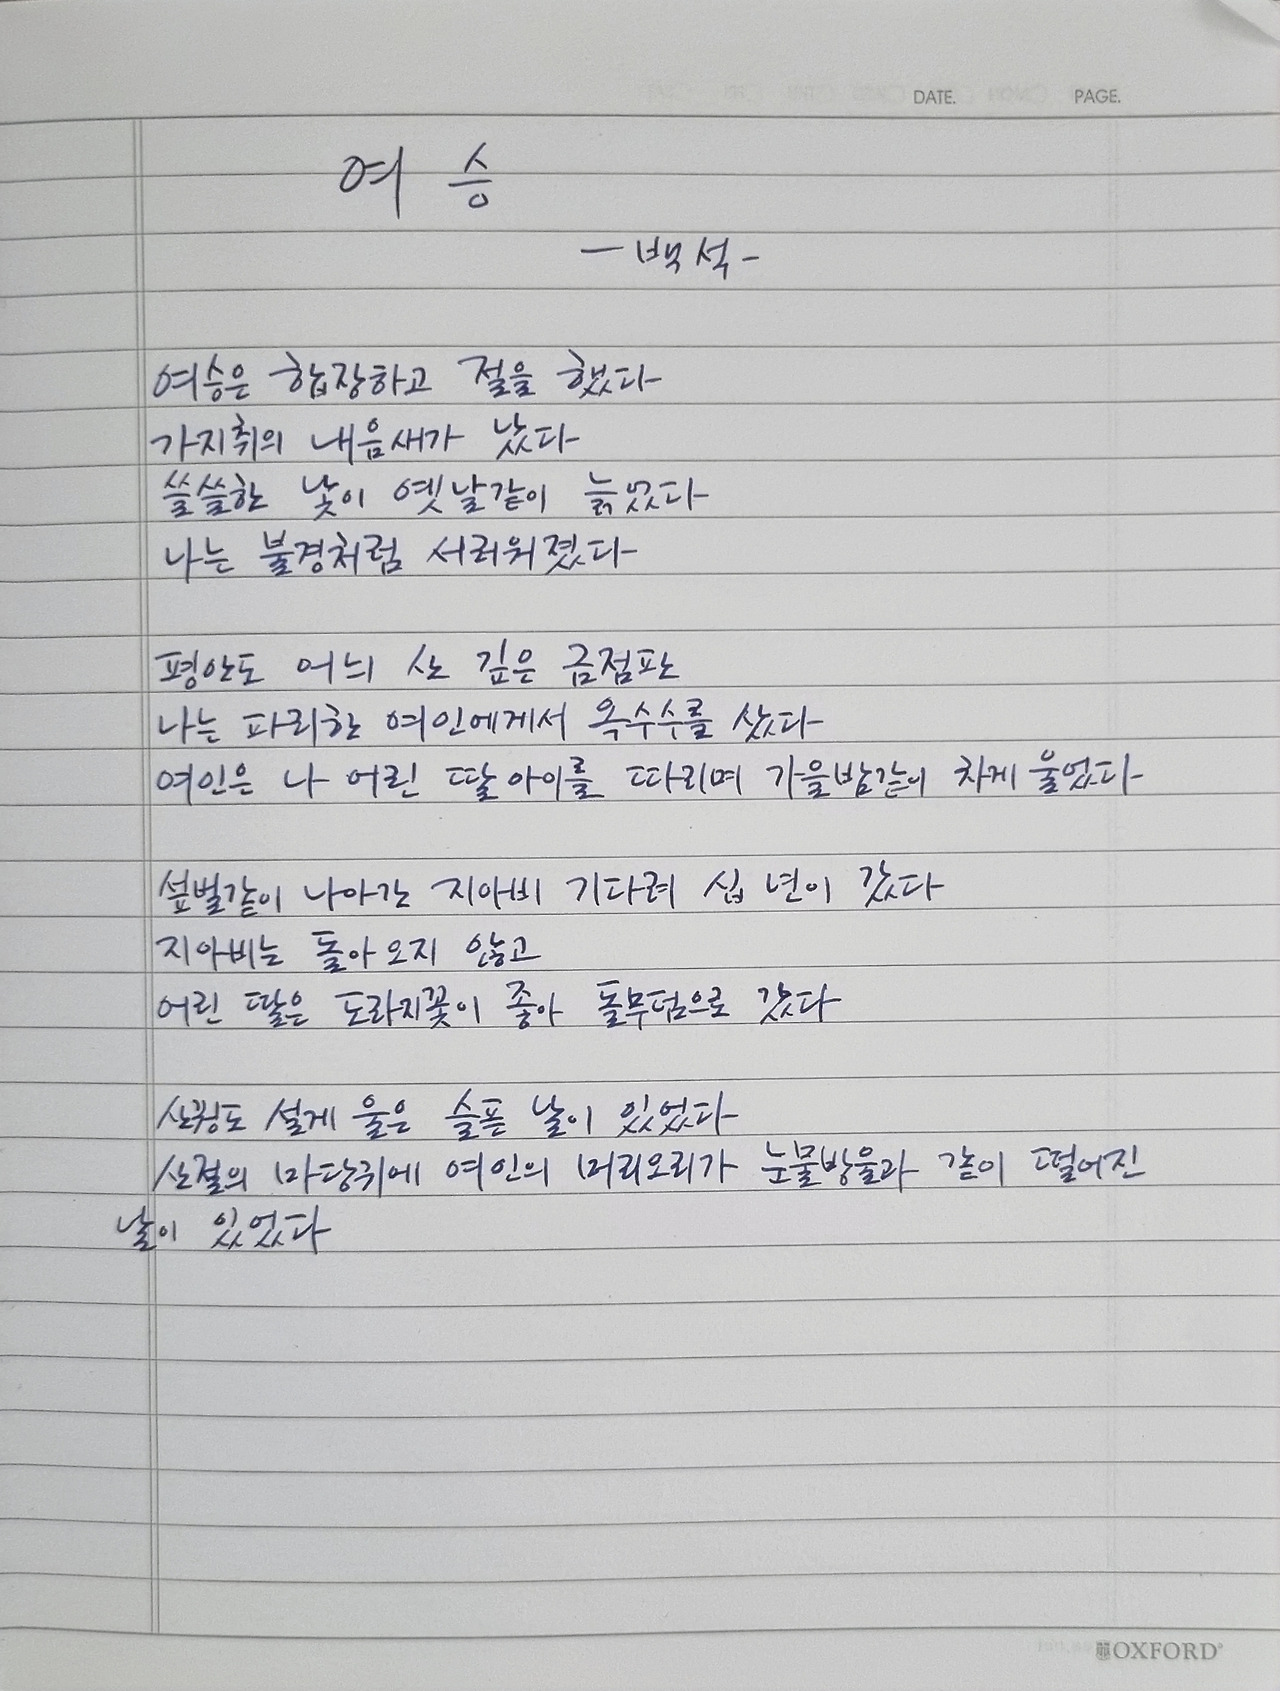 DATE. PAGE.
여 승
- 백석 -
여승은 합장하고 절을 했다
가지취의 내음새가 났다
쓸쓸한 낯이 옛날같이 늙었다
나는 불경처럼 서러워졌다
평안도 어늬 산 깊은 금점판
나는 파리한 여인에게서 옥수수를 샀다
여인은 나 어린 딸 아이를 따리며 가을밤같이 차게 울었다
섶벌같이 나아간 지아비 기다려 십 년이 갔다
지아비는 돌아 오지 않고
어린 딸은 도라지꽃이 좋아 돌무덤으로 갔다
산꿩도 설게 울은 슬픈 날이 있었다
산절의 마당귀에 여인의 머리오리가 눈물방울과 같이 떨어진
날이 있었다
OXFORD